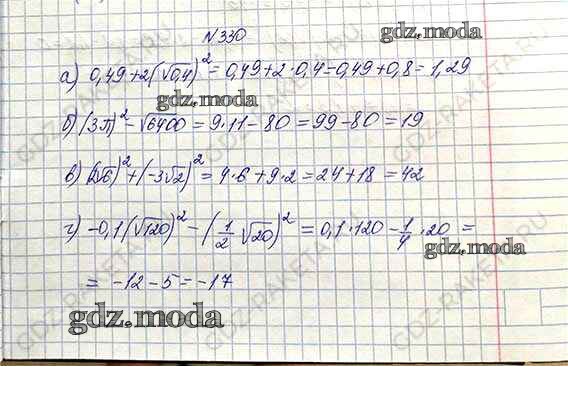 №330
gdz.moda
а) 0,49+2(√0,4)² = 0,49+2·0,4=0,49+0,8=1,29
gdz.moda
б) (3√11)² - √6400 = 9·11 - 80 = 99 - 80 = 19
в) (2√6)² + (-3√2)² = 4·6 + 9·2 = 24 + 18 = 42
г) -0,1(√120)² - (1/2 √20)² = 0,1·120 - 1/4 ·20 =
gdz.moda
= -12 - 5 = -17
gdz.moda
GDZ-RAKETA.RU